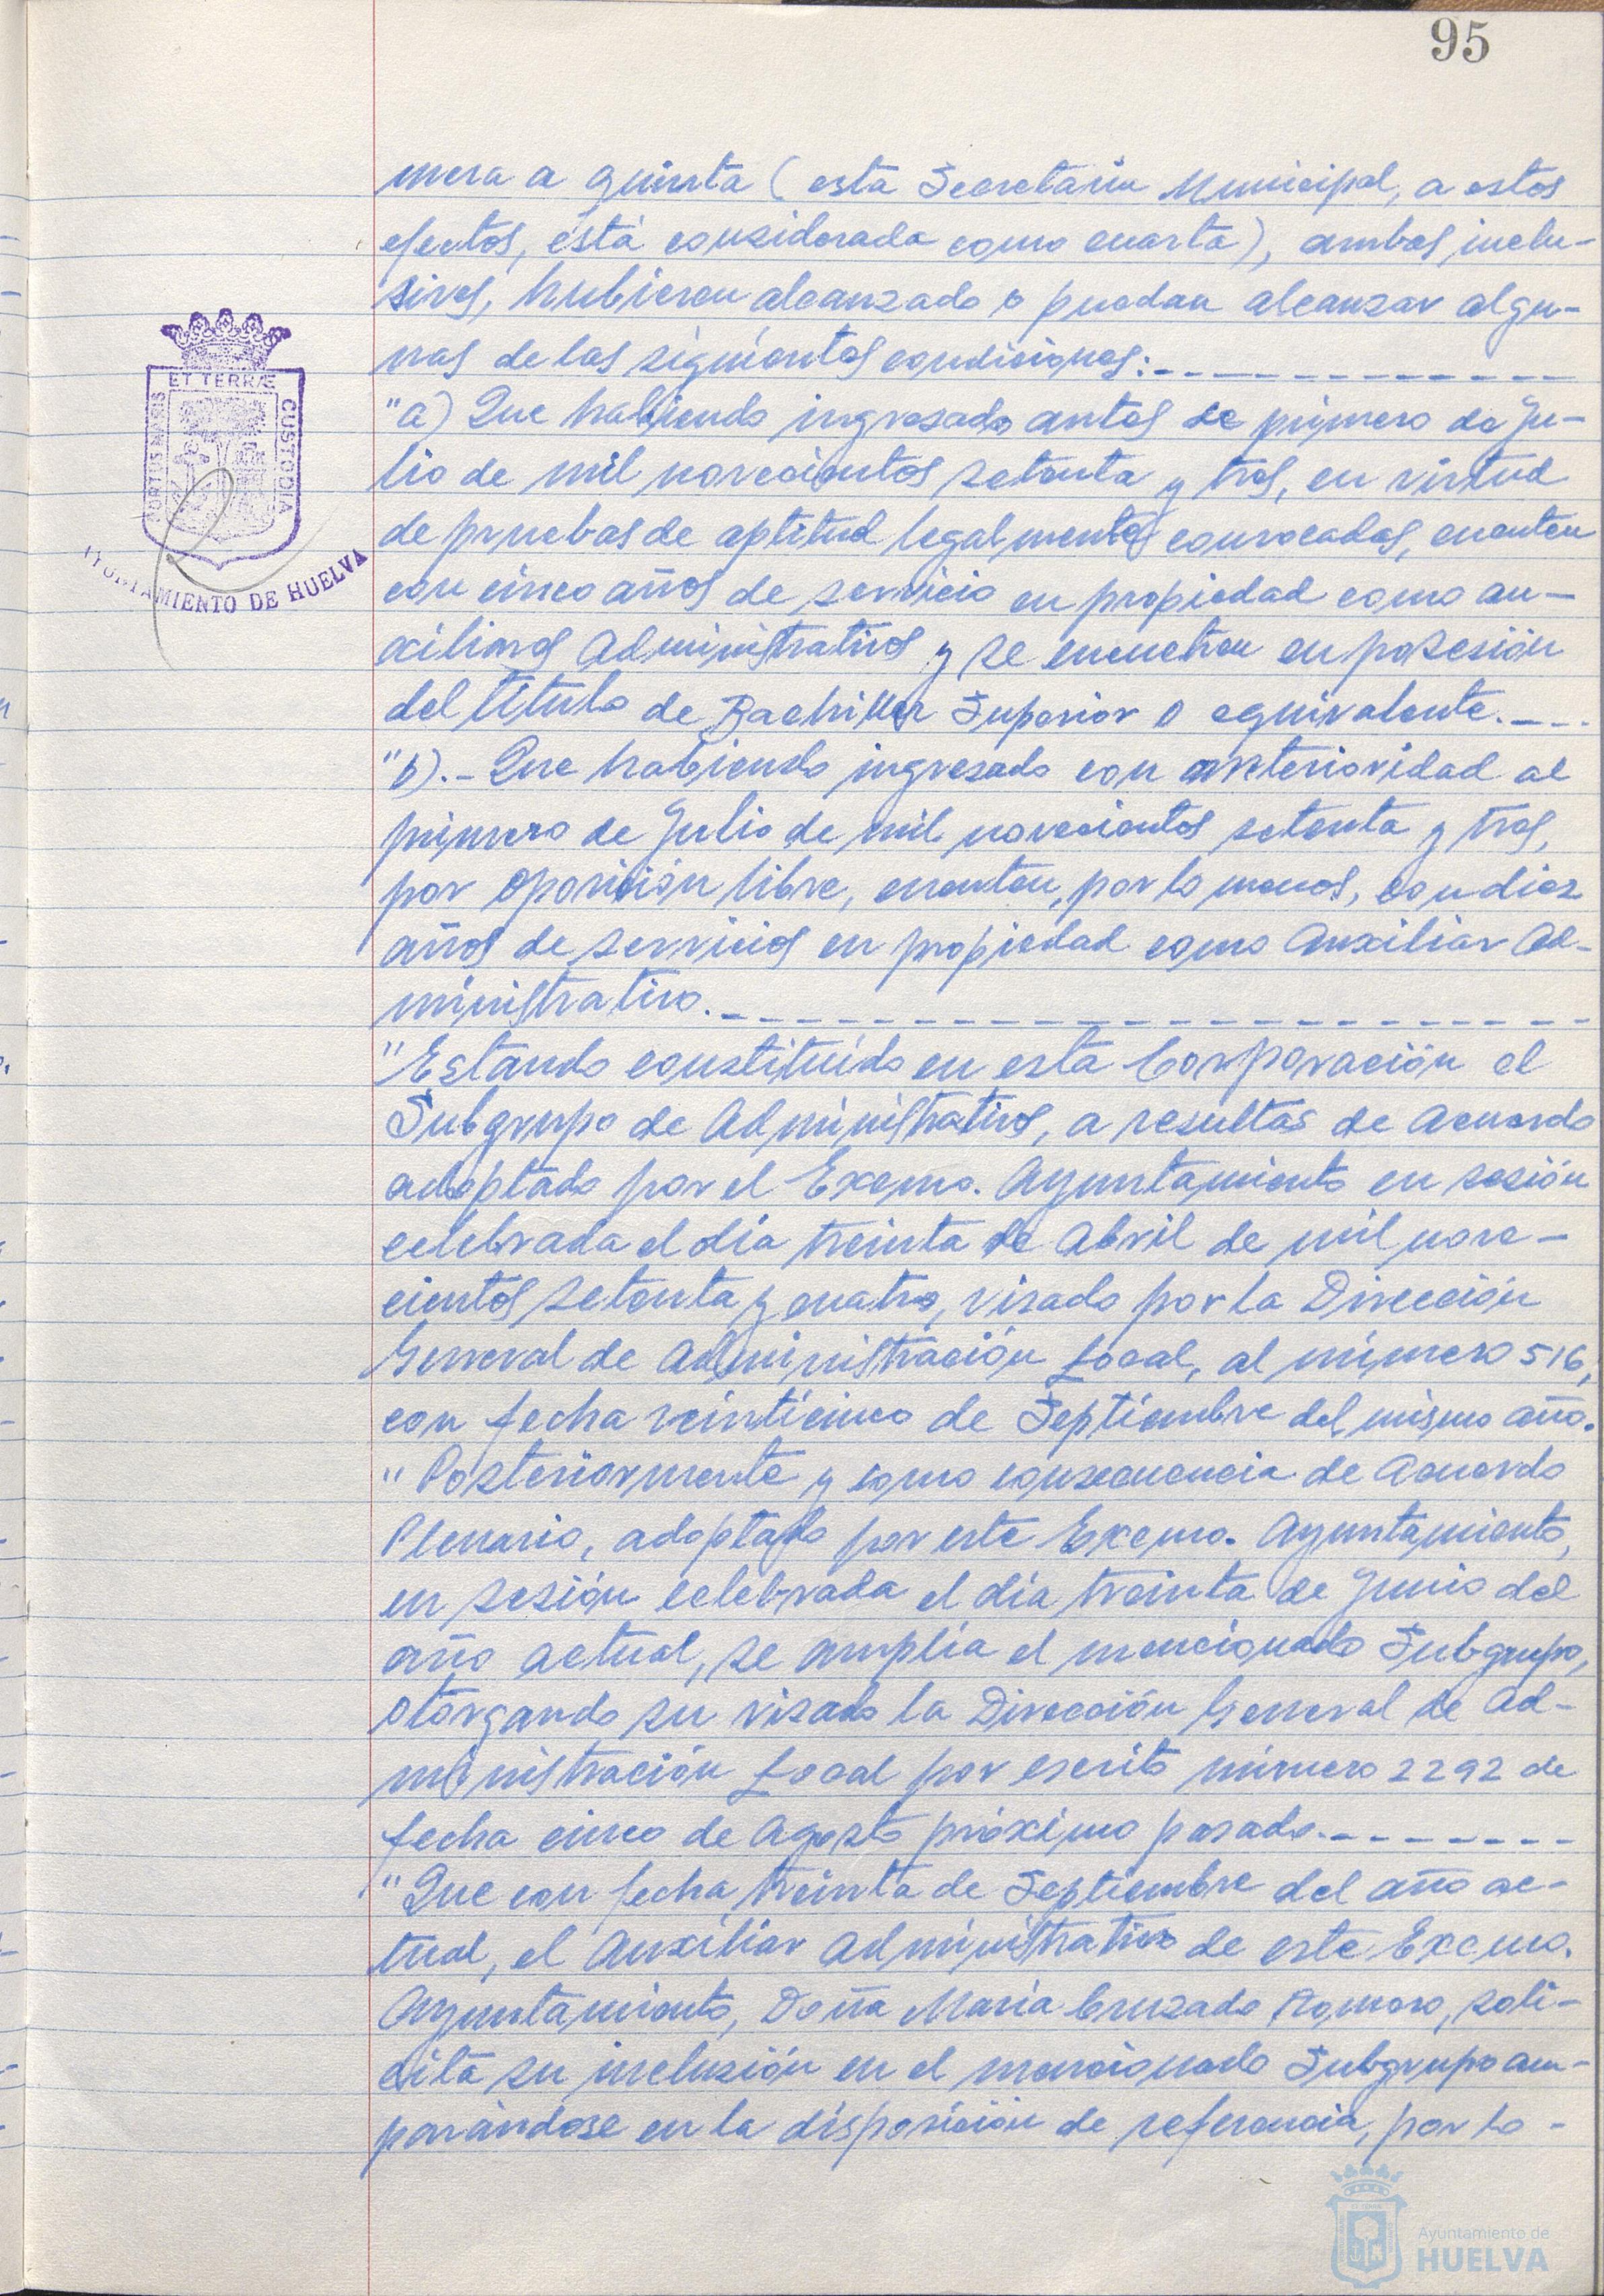 95
mera a quinta (esta Secretaría Municipal, a estos
efectos, está considerada como cuarta), ambas inclu-
sives, hubieren alcanzado o puedan alcanzar algu-
nas de las siguientes condiciones:
"a) Que habiendo ingresado antes de primero de Ju-
lio de mil novecientos setenta y tres, en virtud
de pruebas de aptitud legalmente convocadas, cuenten
con cinco años de servicio en propiedad como au-
xiliares Administrativos y se encuetren en posesión
del título de Bachiller Superior o equivalente.
"b).- Que habiendo ingresado con anterioridad al
primero de Julio de mil novecientos setenta y tres,
por oposición libre, cuenten, por lo menos, con diez
años de servicios en propiedad como Auxiliar Ad-
ministrativo.
"Estando constituído en esta Corporación el
Subgrupo de Administrativos, a resultas de Acuerdo
adoptado por el Excmo. Ayuntamiento en sesión
celebrada el día treinta de Abril de mil nove-
cientos setenta y cuatro, visado por la Dirección
General de Administración Local, al número 516,
con fecha veinticinco de Septiembre del mismo año.
"Posteriormente y como consecuencia de Acuerdo
Plenario, adoptado por este Excmo. Ayuntamiento,
en sesión celebrada el día treinta de Junio del
año actual, se amplía el mencionado Subgrupo,
otorgando su visado la Dirección General de Ad-
ministración Local por escrito número 2292 de
fecha cinco de Agosto próximo pasado.
"Que con fecha treinta de Septiembre del año ac-
tual, el Auxiliar Administrativo de este Excmo.
Ayuntamiento, Doña María Cruzado Romero, soli-
cita su inclusión en el mencionado Subgrupo am-
parándose en la disposición de referencia, por lo-
PORTUS MARIS
ET TERRÆ
CUSTODIA
AYUNTAMIENTO DE HUELVA
Ayuntamiento de
HUELVA